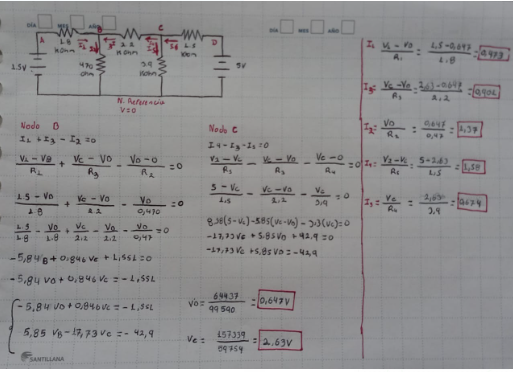 DÍA MES AÑO
DÍA
A
B
C
D
1.8
kohm
I1
I3
2.2
kohm
I4
1.5
kohm
1.5V
470
ohm
3.9
kohm
5V
N. Referencia
V=0
Nodo B
I1 + I3 - I2 = 0
V1 - VB / R1 + VC - VO / R3 - VO - 0 / R2 = 0
1.5 - VO / 1.8 + VC - VO / 2.2 - VO / 0,470 = 0
1.5 / 1.8 - VO / 1.8 + VC / 2.2 - VO / 2.2 - VO / 0,47 = 0
-5,84 VB + 0,846 VC + 1,551 = 0
-5,84 VO + 0,846 VC = -1,551
-5,84 VO + 0,846 VC = -1,551
5,85 VB - 17,73 VC = -42,9
Nodo C
I4 - I3 - I5 = 0
V2 - VC / R5 - VC - VO / R3 - VC - 0 / R4 = 0
5 - VC / 1.5 - VC - VO / 2.2 - VC / 3,9 = 0
8.58(5-VC) - 5.85(VC-VO) - 3.3(VC) = 0
-17,73 VC + 5,85 VO + 42,9 = 0
-17,73 VC + 5,85 VO = -42,9
VO = 64437 / 99590 = 0,647V
VC = 157339 / 59754 = 2,63V
I1 V1 - VO / R1 = 1,5 - 0,647 / 1.8 = 0,473
I3 = VC - VO / R3 = 2,63 - 0,647 / 2,2 = 0,902
I2 = VO / R2 = 0,647 / 0,47 = 1,37
I4 = V2 - VC / R5 = 5 - 2,63 / 1,5 = 1,58
VC / R4 = 2,63 / 3,9 = 0,674
SANTILLANA